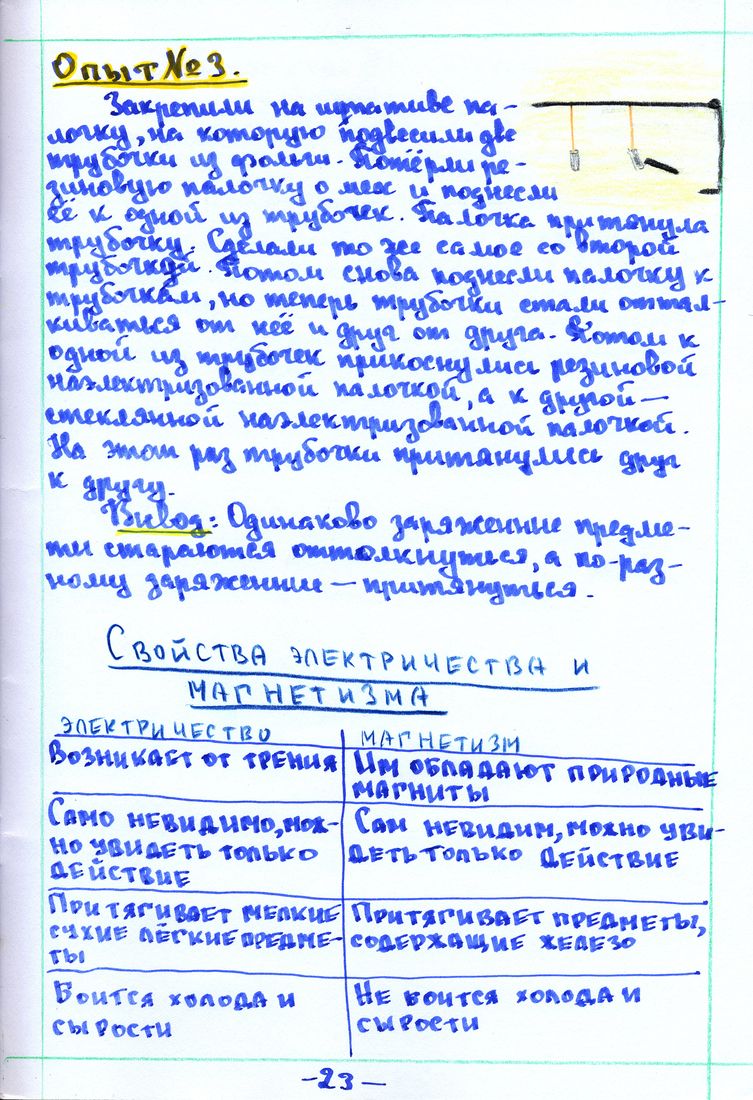 Опыт №3.
Закрепили на штативе па-
лочку, на которую подвесили две
трубочки из фольги. Потёрли ре-
зиновую палочку о мех и поднесли
её к одной из трубочек. Палочка притянула
трубочку. Сделали то же самое со второй
трубочкой. Потом снова поднесли палочку к
трубочкам, но теперь трубочки стали оттал-
киваться от неё и друг от друга. Потом к
одной из трубочек прикоснулись резиновой
наэлектризованной палочкой, а к другой —
стеклянной наэлектризованной палочкой.
На этот раз трубочки притянулись друг
к другу.
Вывод: Одинаково заряженные предме-
ты стараются оттолкнуться, а по-раз-
ному заряженные — притянуться.
Свойства электричества и
магнетизма
Электричество
Магнетизм
Возникает от трения
Им обладают природные
магниты
Само невидимо, мож-
но увидеть только
действие
Сам невидим, можно уви-
деть только действие
Притягивает мелкие
сухие лёгкие предме-
ты
Притягивает предметы,
содержащие железо
Боится холода и
сырости
Не боится холода и
сырости
-23-